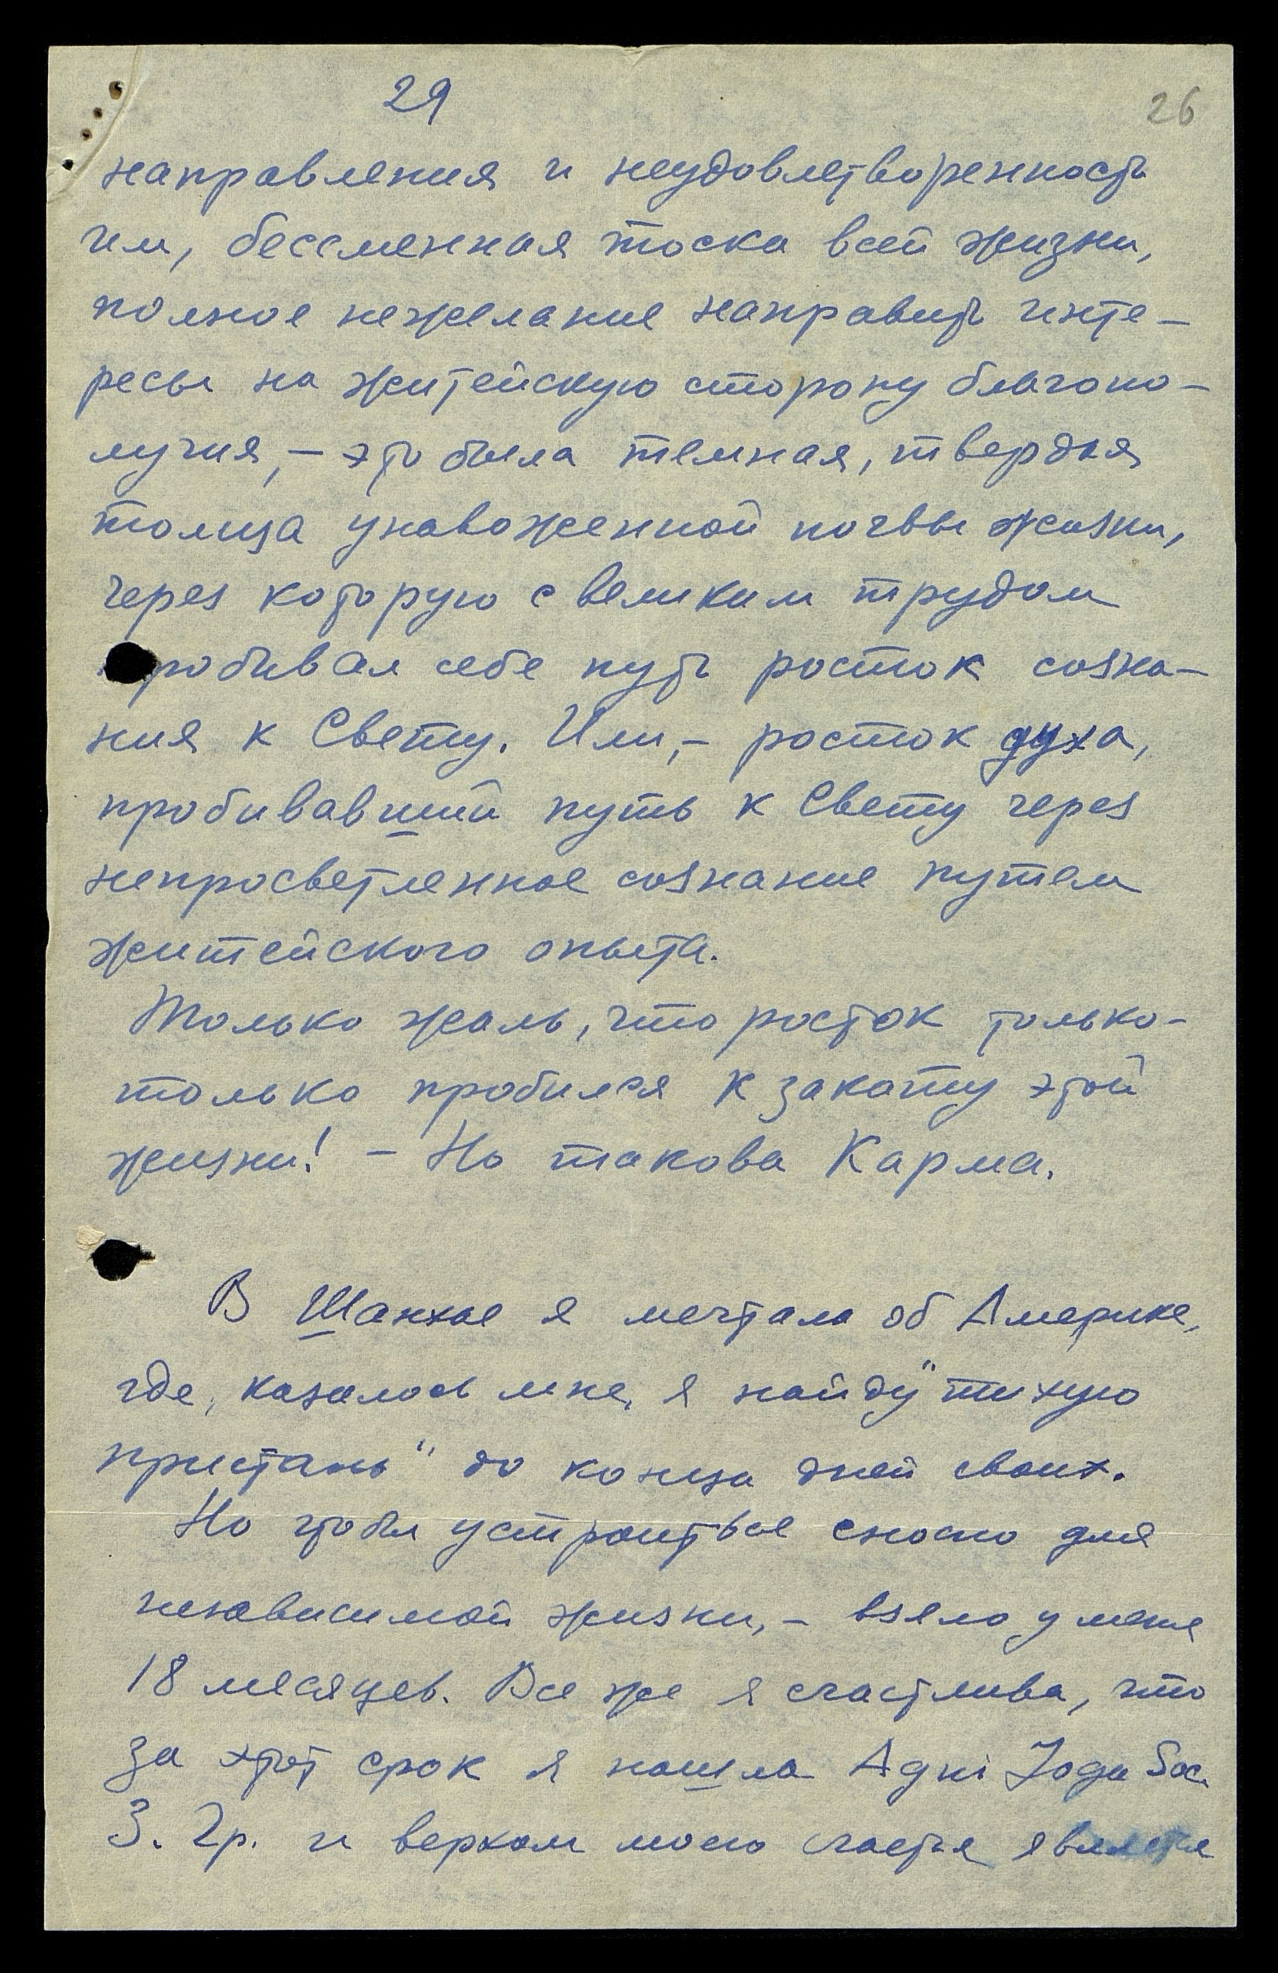 29
26
направления и неудовлетворенность
им, бессменная тоска всей жизни,
полное нежелание направить инте-
ресы на житейскую сторону благопо-
лучия, – это была темная, твердая
толща унавоженной почвы жизни,
через которую с великим трудом
пробивал себе путь росток созна-
ния к Свету. Или, – росток духа,
пробивавший путь к Свету через
непросветленное сознание путем
житейского опыта.
Только жаль, что росток только-
только пробился к закату этой
жизни! – Но такова Карма.
В Шанхае я мечтала об Америке,
где, казалось мне, я найду "тихую
пристань" до конца дней своих.
Но чтобы устроиться сносно для
независимой жизни, – взяло у меня
18 месяцев. Все же я счастлива, что
за этот срок я нашла Agni Yoga Soc.
З. Гр. и верхом моего счастья является